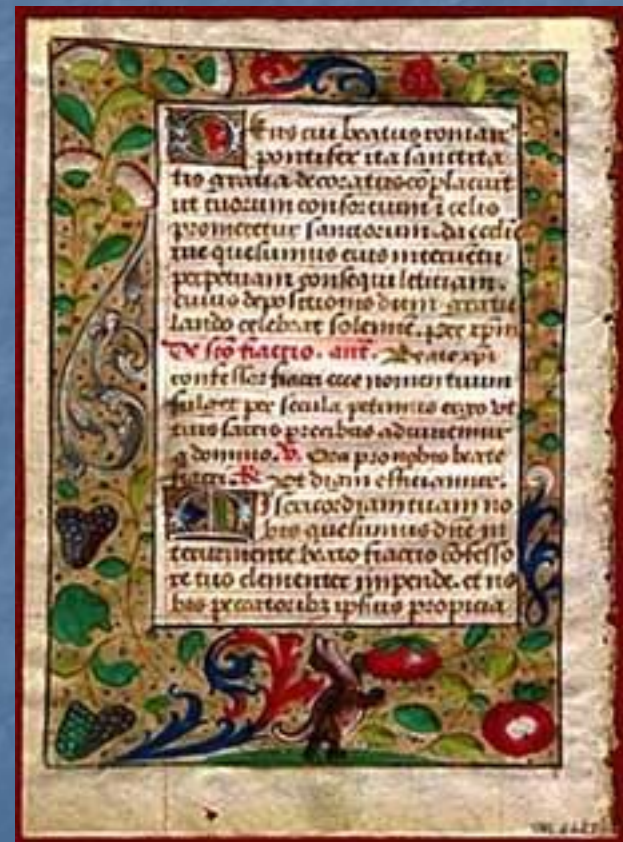 Eus cui beatus romar'
pontifex ita sanctita
tis gratia decoratus cōplacuit
ut tuorum consortium ī celis
promeretur sanctorum. da eccl̄ie
tue quesumus eius interuētu
perpetuam consequi leticiam.
cuius depositionis diem gratu
lando celebrat solenne. per xpm
De scō fiacrio. ant. Beate xpi
confessor fiacri ecce nomen tuum
fulget per secula petimus ergo vt
tuis sacris precibus adiuuemur
a domino. V. Ora pro nobis beate
fiacri. R. Vt digni efficiamur.
M Isericordiam tuam no
bis quesumus dn̄e in
terueniente beato fiacrio cōfesso
re tuo clementer impende. et no
bis peccatorib3 ipsius propicia